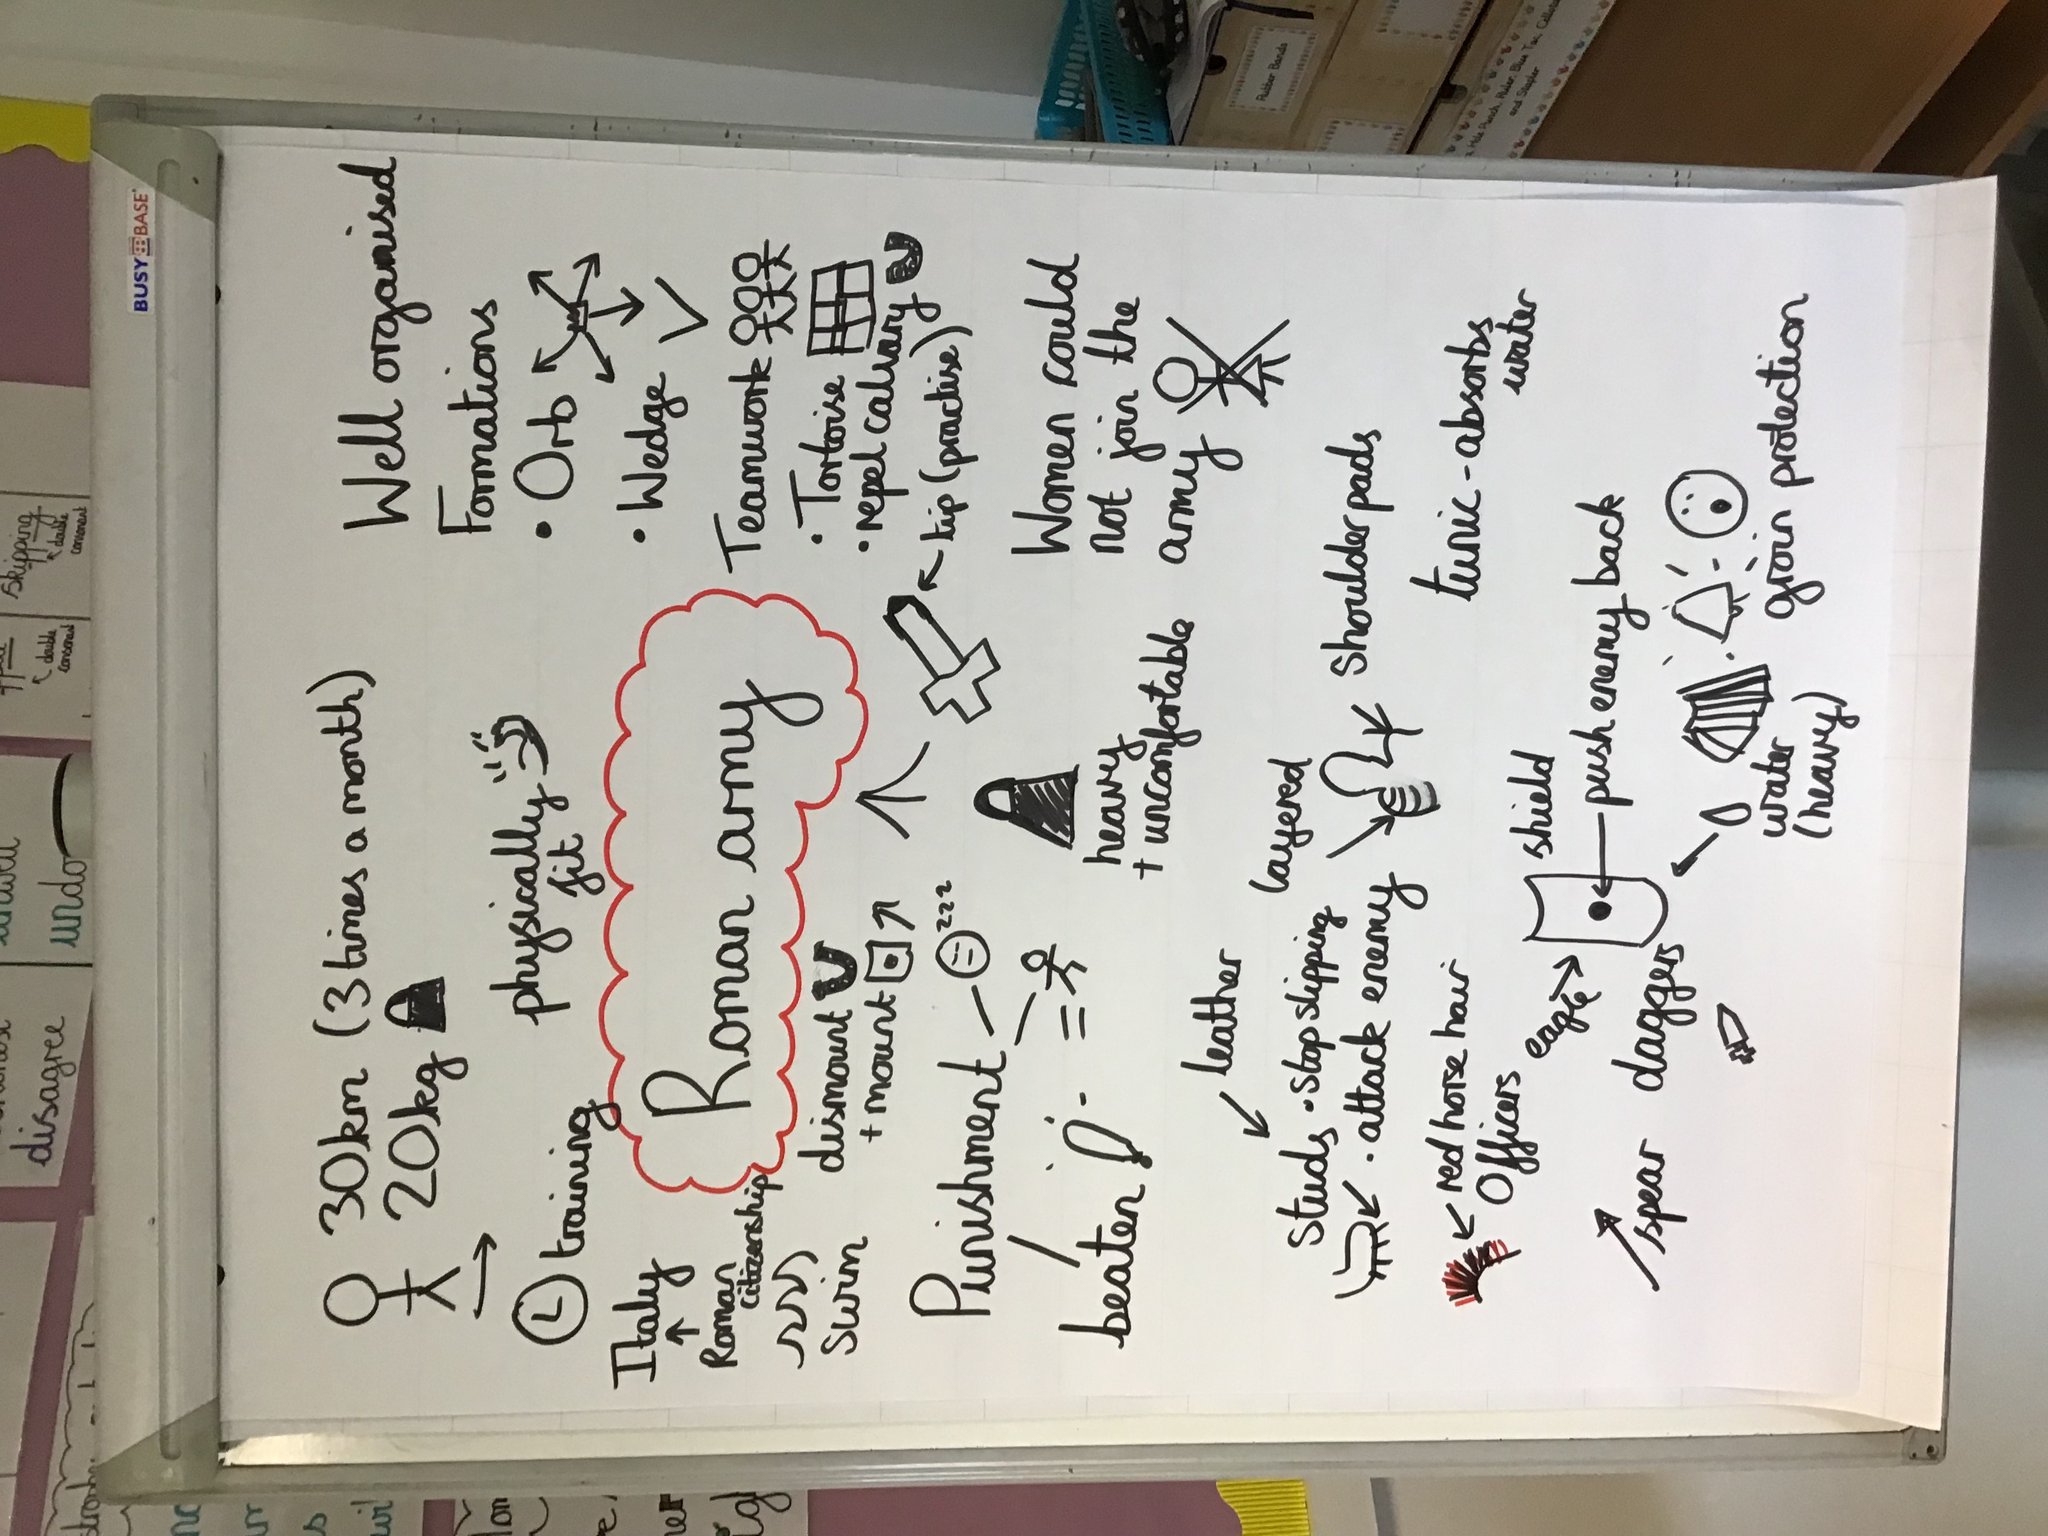 disagree
undo
double
consonant
skipping
double
consonant
BUSY BASE
30km (3 times a month)
20kg
training
physically
fit
Italy
Roman
citizenship
swim
Roman army
dismount
+ mount
Well organised
Formations
• Orb
• Wedge
Teamwork
• Tortoise
• repel calvary
tip (practise)
Punishment
zzz
beaten
heavy
+ uncomfortable
Women could
not join the
army
leather
studs • stop slipping
• attack enemy
layered
shoulder pads
red horse hair
Officers
tunic - absorbs
water
eagle
shield
push enemy back
spear
daggers
water
(heavy)
groin protection
Rubber Bands
Hole Punch, Ruler, Blue Tac,
and Stapler